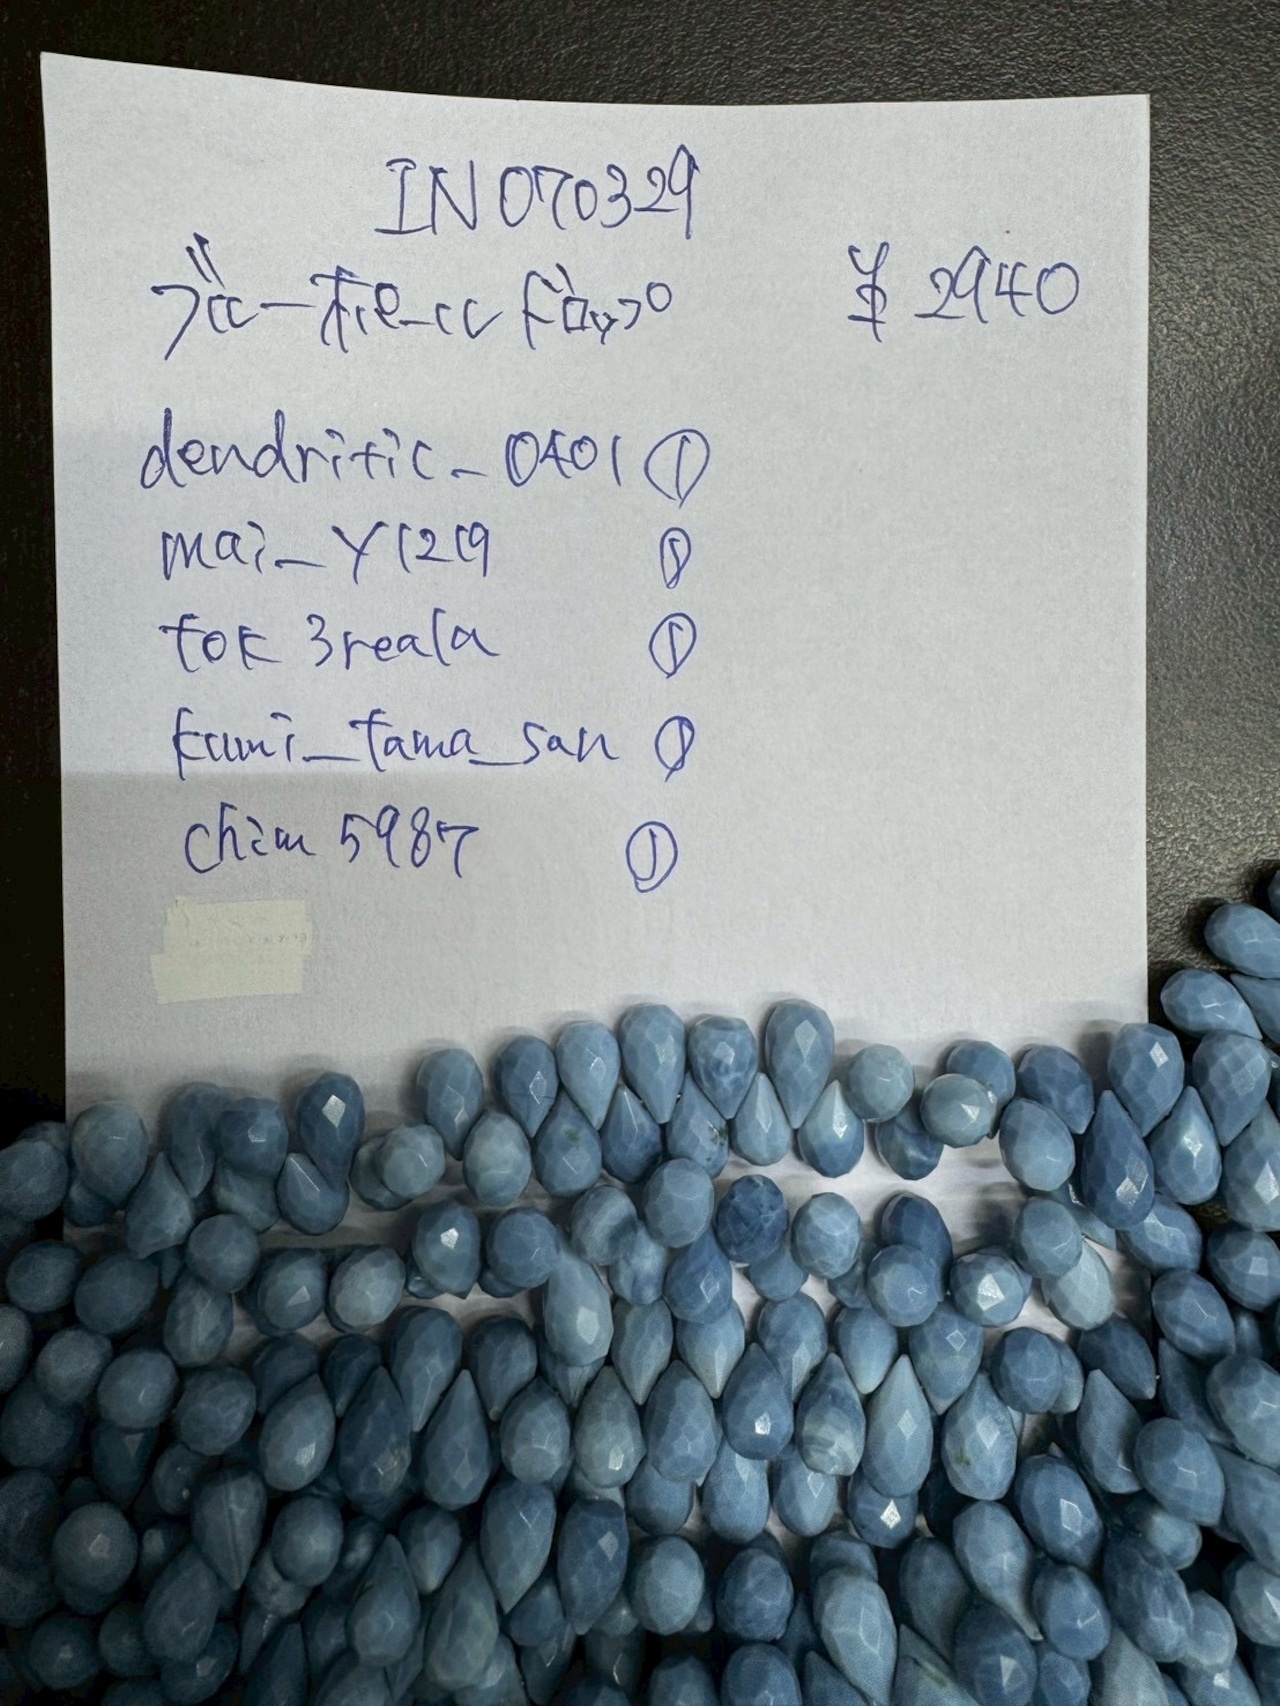 IN070329
ブルーオパールドロップ ¥2940
dendritic_0401 ①
mai_Y1219 ①
tok3reala ①
kumi_tama_san ①
chim5987 ①